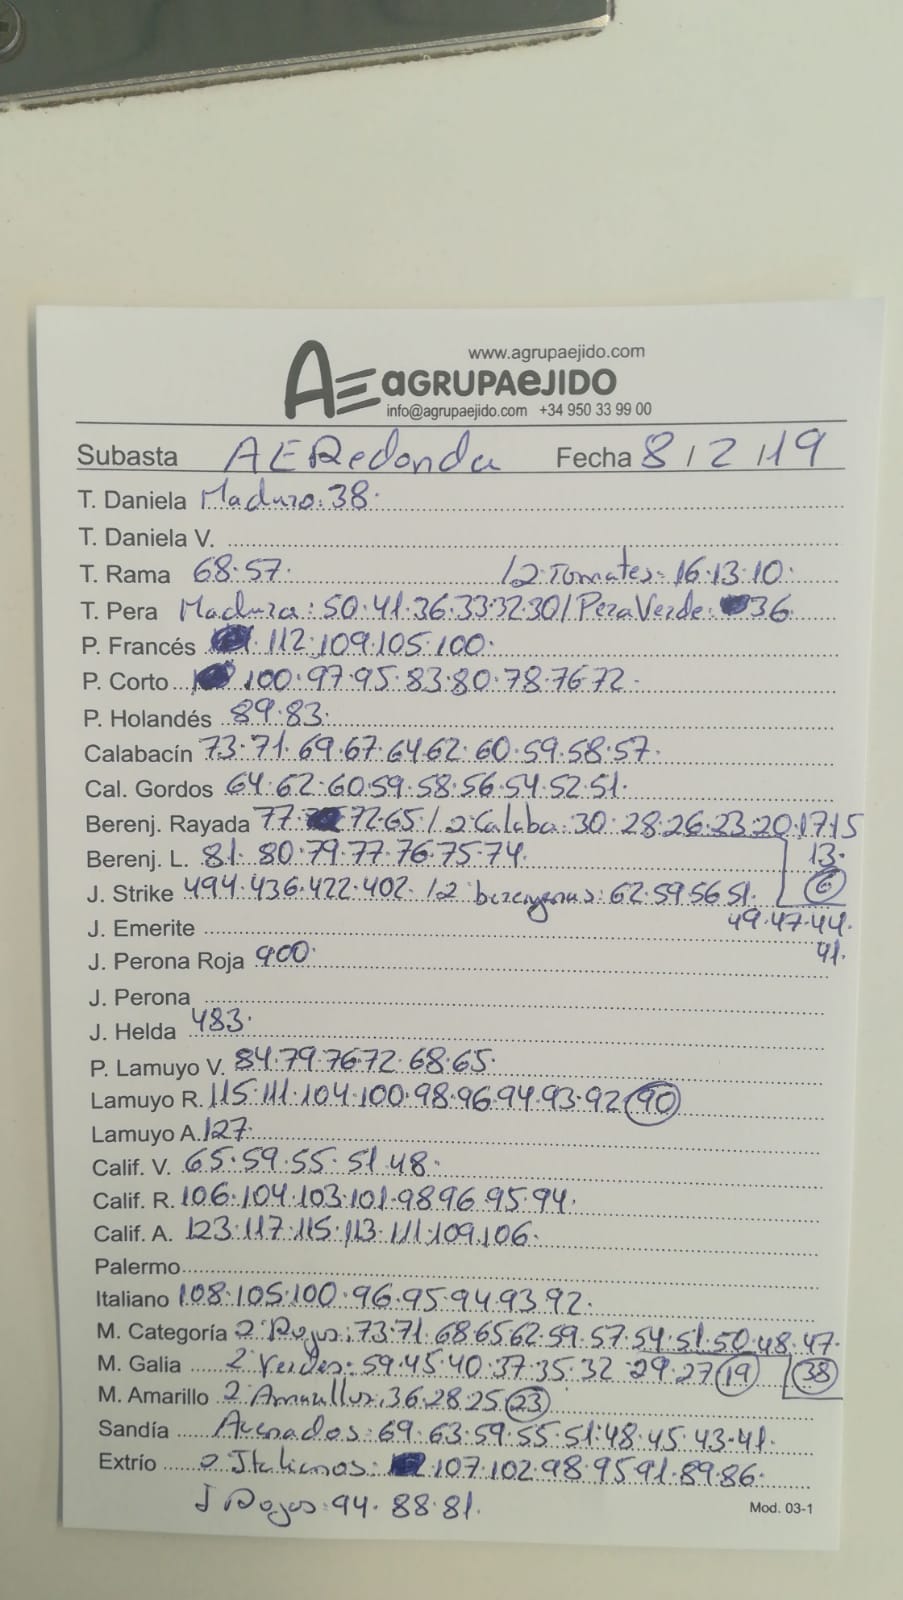 www.agrupaejido.com
AE aGRUPAeJIDO
info@agrupaejido.com +34 950 33 99 00
Subasta AERedonda Fecha 8/2/19
T. Daniela Maduro: 38.
T. Daniela V.
T. Rama 68.57. /2 Tomates: 16.13.10.
T. Pera Madura: 50.41.36.33.32.30/Pera Verde: 36.
P. Francés 112.109.105.100.
P. Corto 100.97.95.83.80.78.76.72.
P. Holandés 89.83.
Calabacín 73.71.69.67.64.62.60.59.58.57.
Cal. Gordos 64.62.60.59.58.56.54.52.51.
Berenj. Rayada 77. 72.65./2 Calaba: 30.28.26.23.20.17.15
Berenj. L. 81.80.79.77.76.75.74. 13.
J. Strike 494.436.422.402. /2 berengenas: 62.59.56.51. 6
J. Emerite 49.47.44.
J. Perona Roja 900. 41.
J. Perona
J. Helda 483.
P. Lamuyo V. 84.79.76.72.68.65.
Lamuyo R. 115.111.104.100.98.96.94.93.92 90
Lamuyo A. 127.
Calif. V. 65.59.55.51.48.
Calif. R. 106.104.103.101.98.96.95.94.
Calif. A. 123.117.115.113.111.109.106.
Palermo
Italiano 108.105.100.96.95.94.93.92.
M. Categoría 2 Rojos: 73.71.68.65.62.59.57.54.51.50.48.47.
M. Galia 2 Verdes: 59.45.40.37.35.32.29.27 19 38
M. Amarillo 2 Amarillos: 36.28.25 23
Sandía Asurados: 69.63.59.55.51.48.45.43.41.
Extrío 2 Italianos: 107.102.98.95.91.89.86.
J Rojos: 94.88.81.
Mod. 03-1